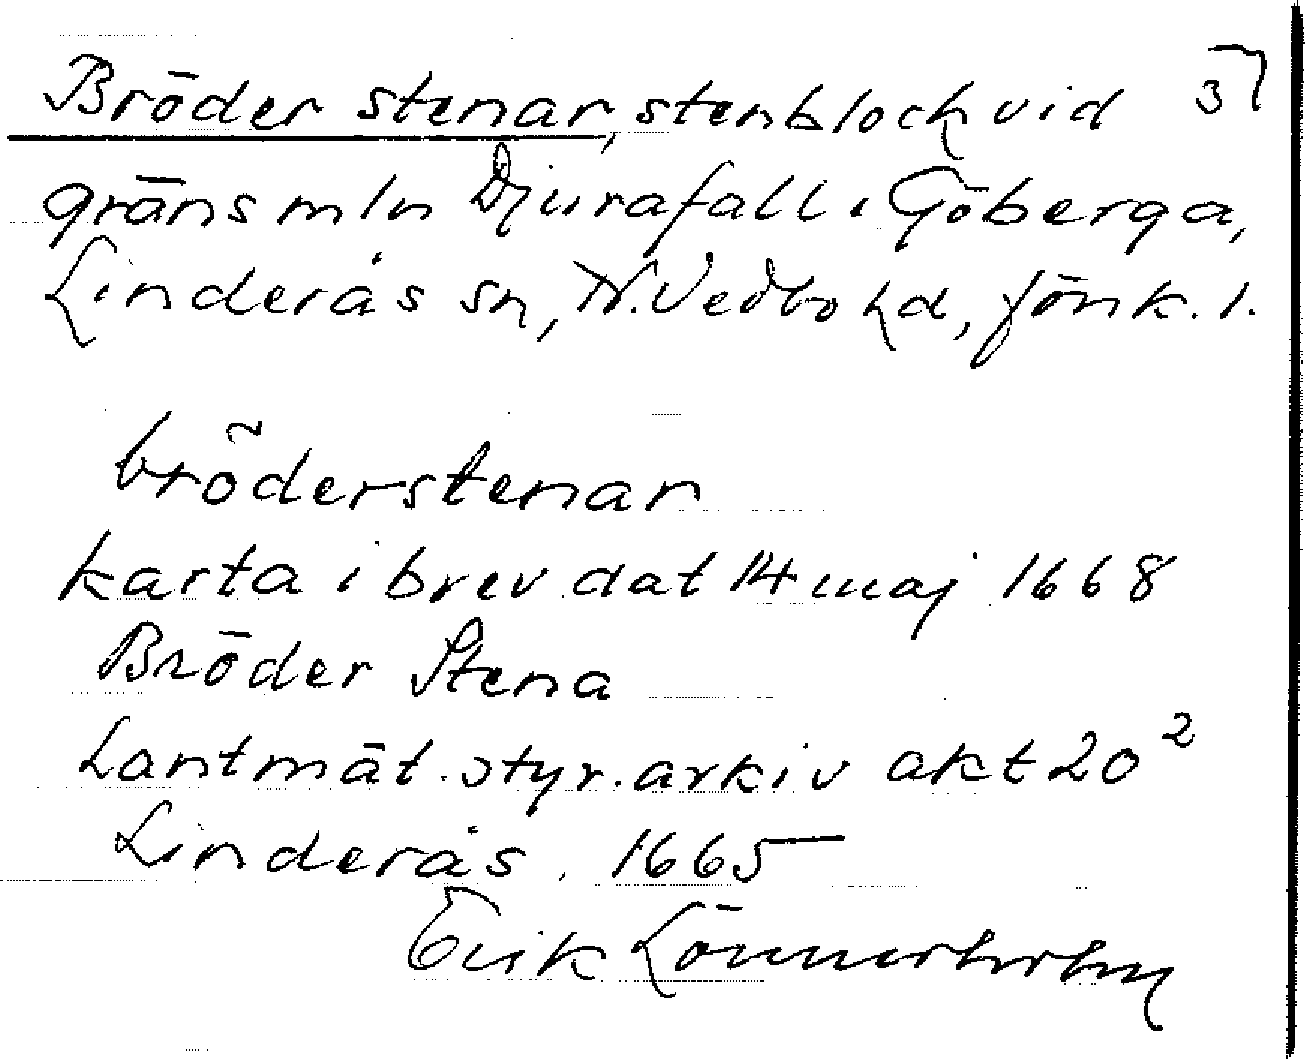 Bröder stenar, stenblock vid 37
gräns mln Djurafall i Göberga,
Linderås sn, N. Vedbo hd, Jönk. l.
bröderstenar
karta i brev dat 14 maj 1668
Bröder Stena
Lantmät. styr. arkiv akt 20²
Linderås. 1665
Erik Lönnerholm